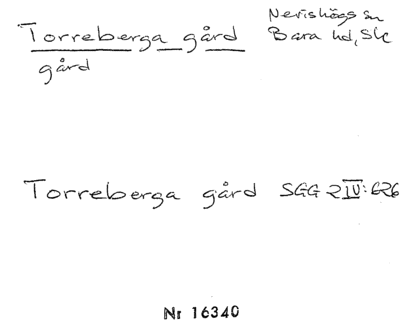 Torreberga gård
Nevishögs sn
Bara hd, Sk
gård
Torreberga gård SGG 2 IV: 626
Nr 16340